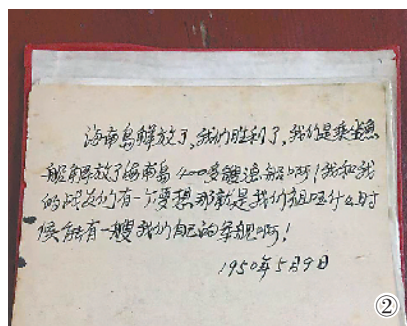 海南岛解放了，我们胜利了，我们是乘坐渔
船解放了海南岛400多艘渔船啊！我和我
的战友们有一个梦想那就是我们祖国什么时
候能有一艘我们自己的军舰啊！
1950年5月9日
②